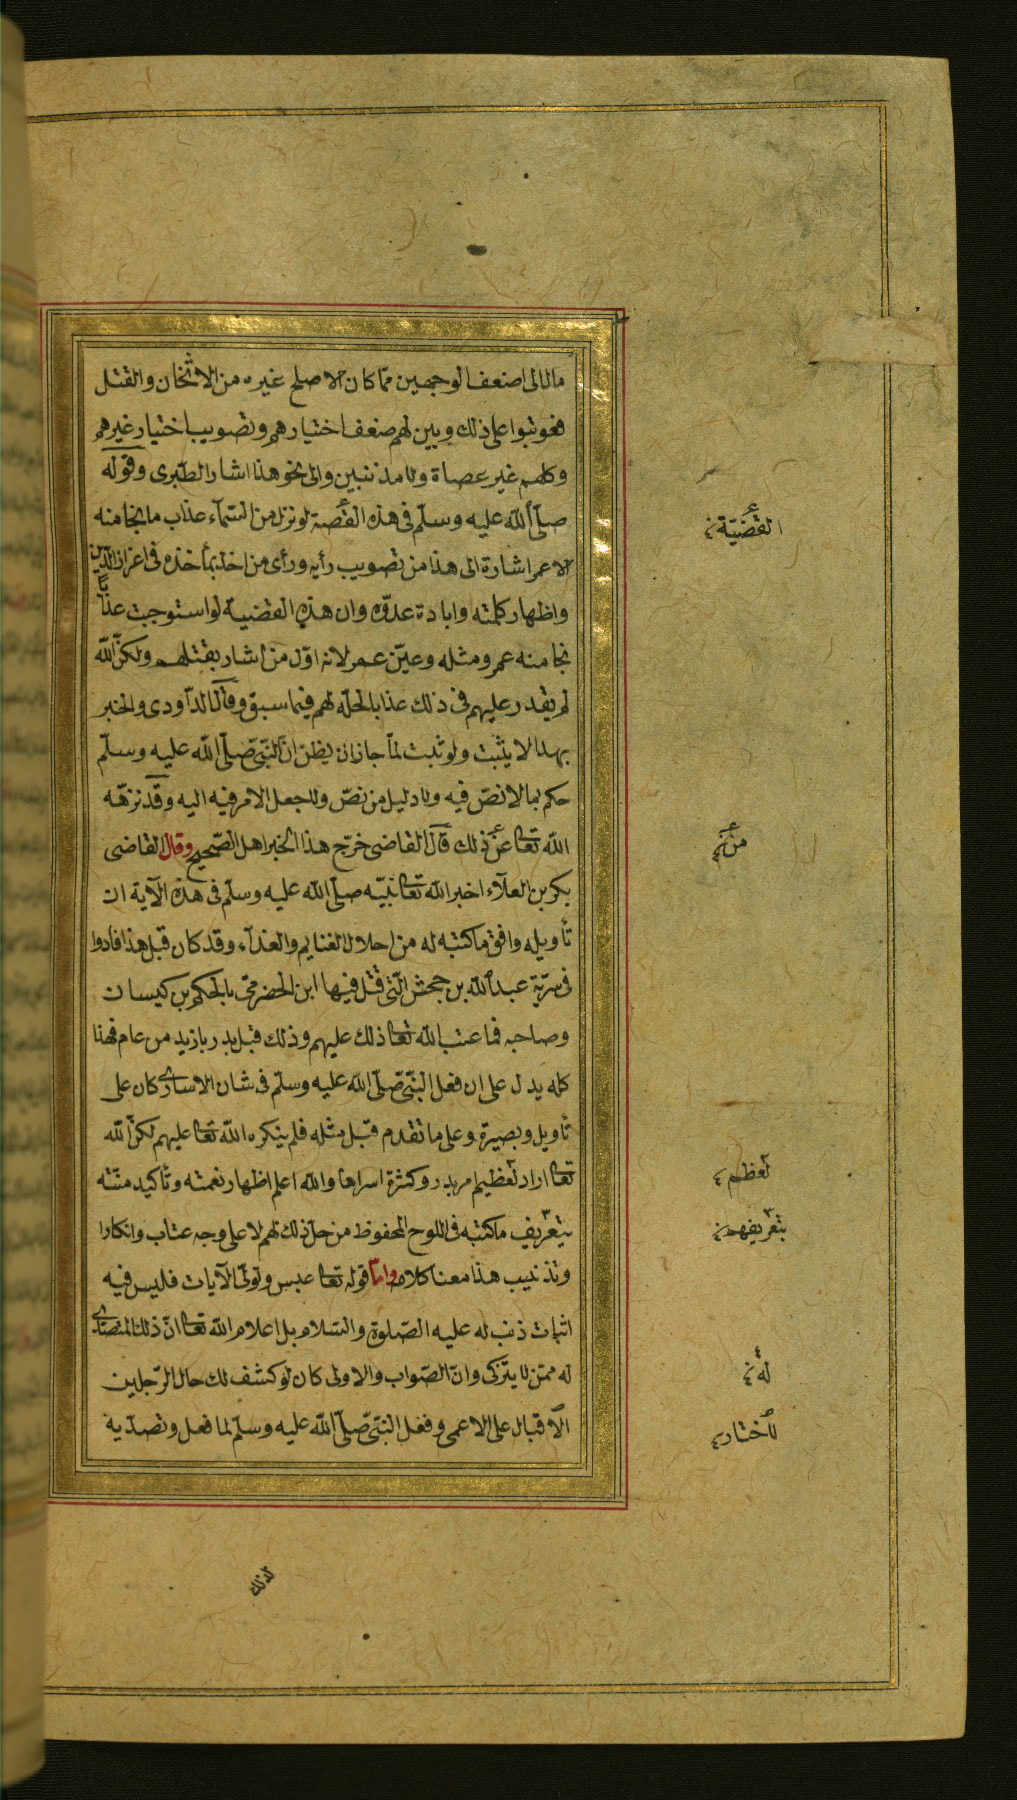 مالالى اضعف الوجهين مما كان الاصلح غيره من الاثخان والقتل
فعوتبوا على ذلك وبين لهم ضعف اختيارهم وتصويب اختيار غيرهم
وكلهم غير عصاة ولا مذنبين والى نحو هذا اشار الطبرى وقوله
صلى الله عليه وسلم فى هذه القصة لو نزل من السمآء عذاب ما نجا منه
الا عمر اشارة الى هذا من تصويب رأيه ورأى من اخذ بمأخذه فى اعزاز الدين
واظهار كلمته وابادة عدوه وان هذه القضية لو استوجبت عذابا
نجا منه عمر ومثله وعين عمر لانه اول من اشار بقتلهم ولكن الله
لم يقدر عليهم فى ذلك عذابا لحله لهم فيما سبق وقال الداودى والخبر
بهذا لا يثبت ولو ثبت لما جاز ان يظن ان النبى صلى الله عليه وسلم
حكم بما لا نص فيه ولا دليل من نص ولا جعل الامر فيه اليه وقد نزهه
الله تعالى عن ذلك قال القاضى خرج هذا الخبر اهل الصحيح وقال القاضى
بكر بن العلآء اخبر الله تعالى نبيه صلى الله عليه وسلم فى هذه الآية ان
تأويله وافق ما كتبه له من احلال الغنايم والفدآء وقد كان قبل هذا فادوا
فى سرية عبد الله بن جحش التى قتل فيها ابن الحضرمى بالحكم بن كيسان
وصاحبه فما عتب الله تعالى ذلك عليهم وذلك قبل بدر بازيد من عام فهذا
كله يدل على ان فعل النبى صلى الله عليه وسلم فى شان الاسارى كان على
تأويل وبصيرة وعلى ما تقدم قبل مثله فلم ينكره الله تعالى عليهم لكن الله
تعالى اراد لعظيم امر بدر وكثرة اسراها والله اعلم اظهار نعمته وتأكيد منته
بتعريف ما كتبه فى اللوح المحفوظ من حل ذلك لهم لا على وجه عتاب وانكار ا
وتذنيب هذا معنا كلامه واما قوله تعالى عبس وتولى الآيات فليس فيه
اثبات ذنب له عليه الصلوة والسلام بل اعلام الله تعالى ان ذلك المتصدى
له ممن لا يتزكى وان الصواب والاولى كان لو كشف لك حال الرجلين
الاقبال على الاعمى وفعل النبى صلى الله عليه وسلم لما فعل وتصديه
القضية
من
لعظم
بتعريفهم
له
لاختار
لذلك